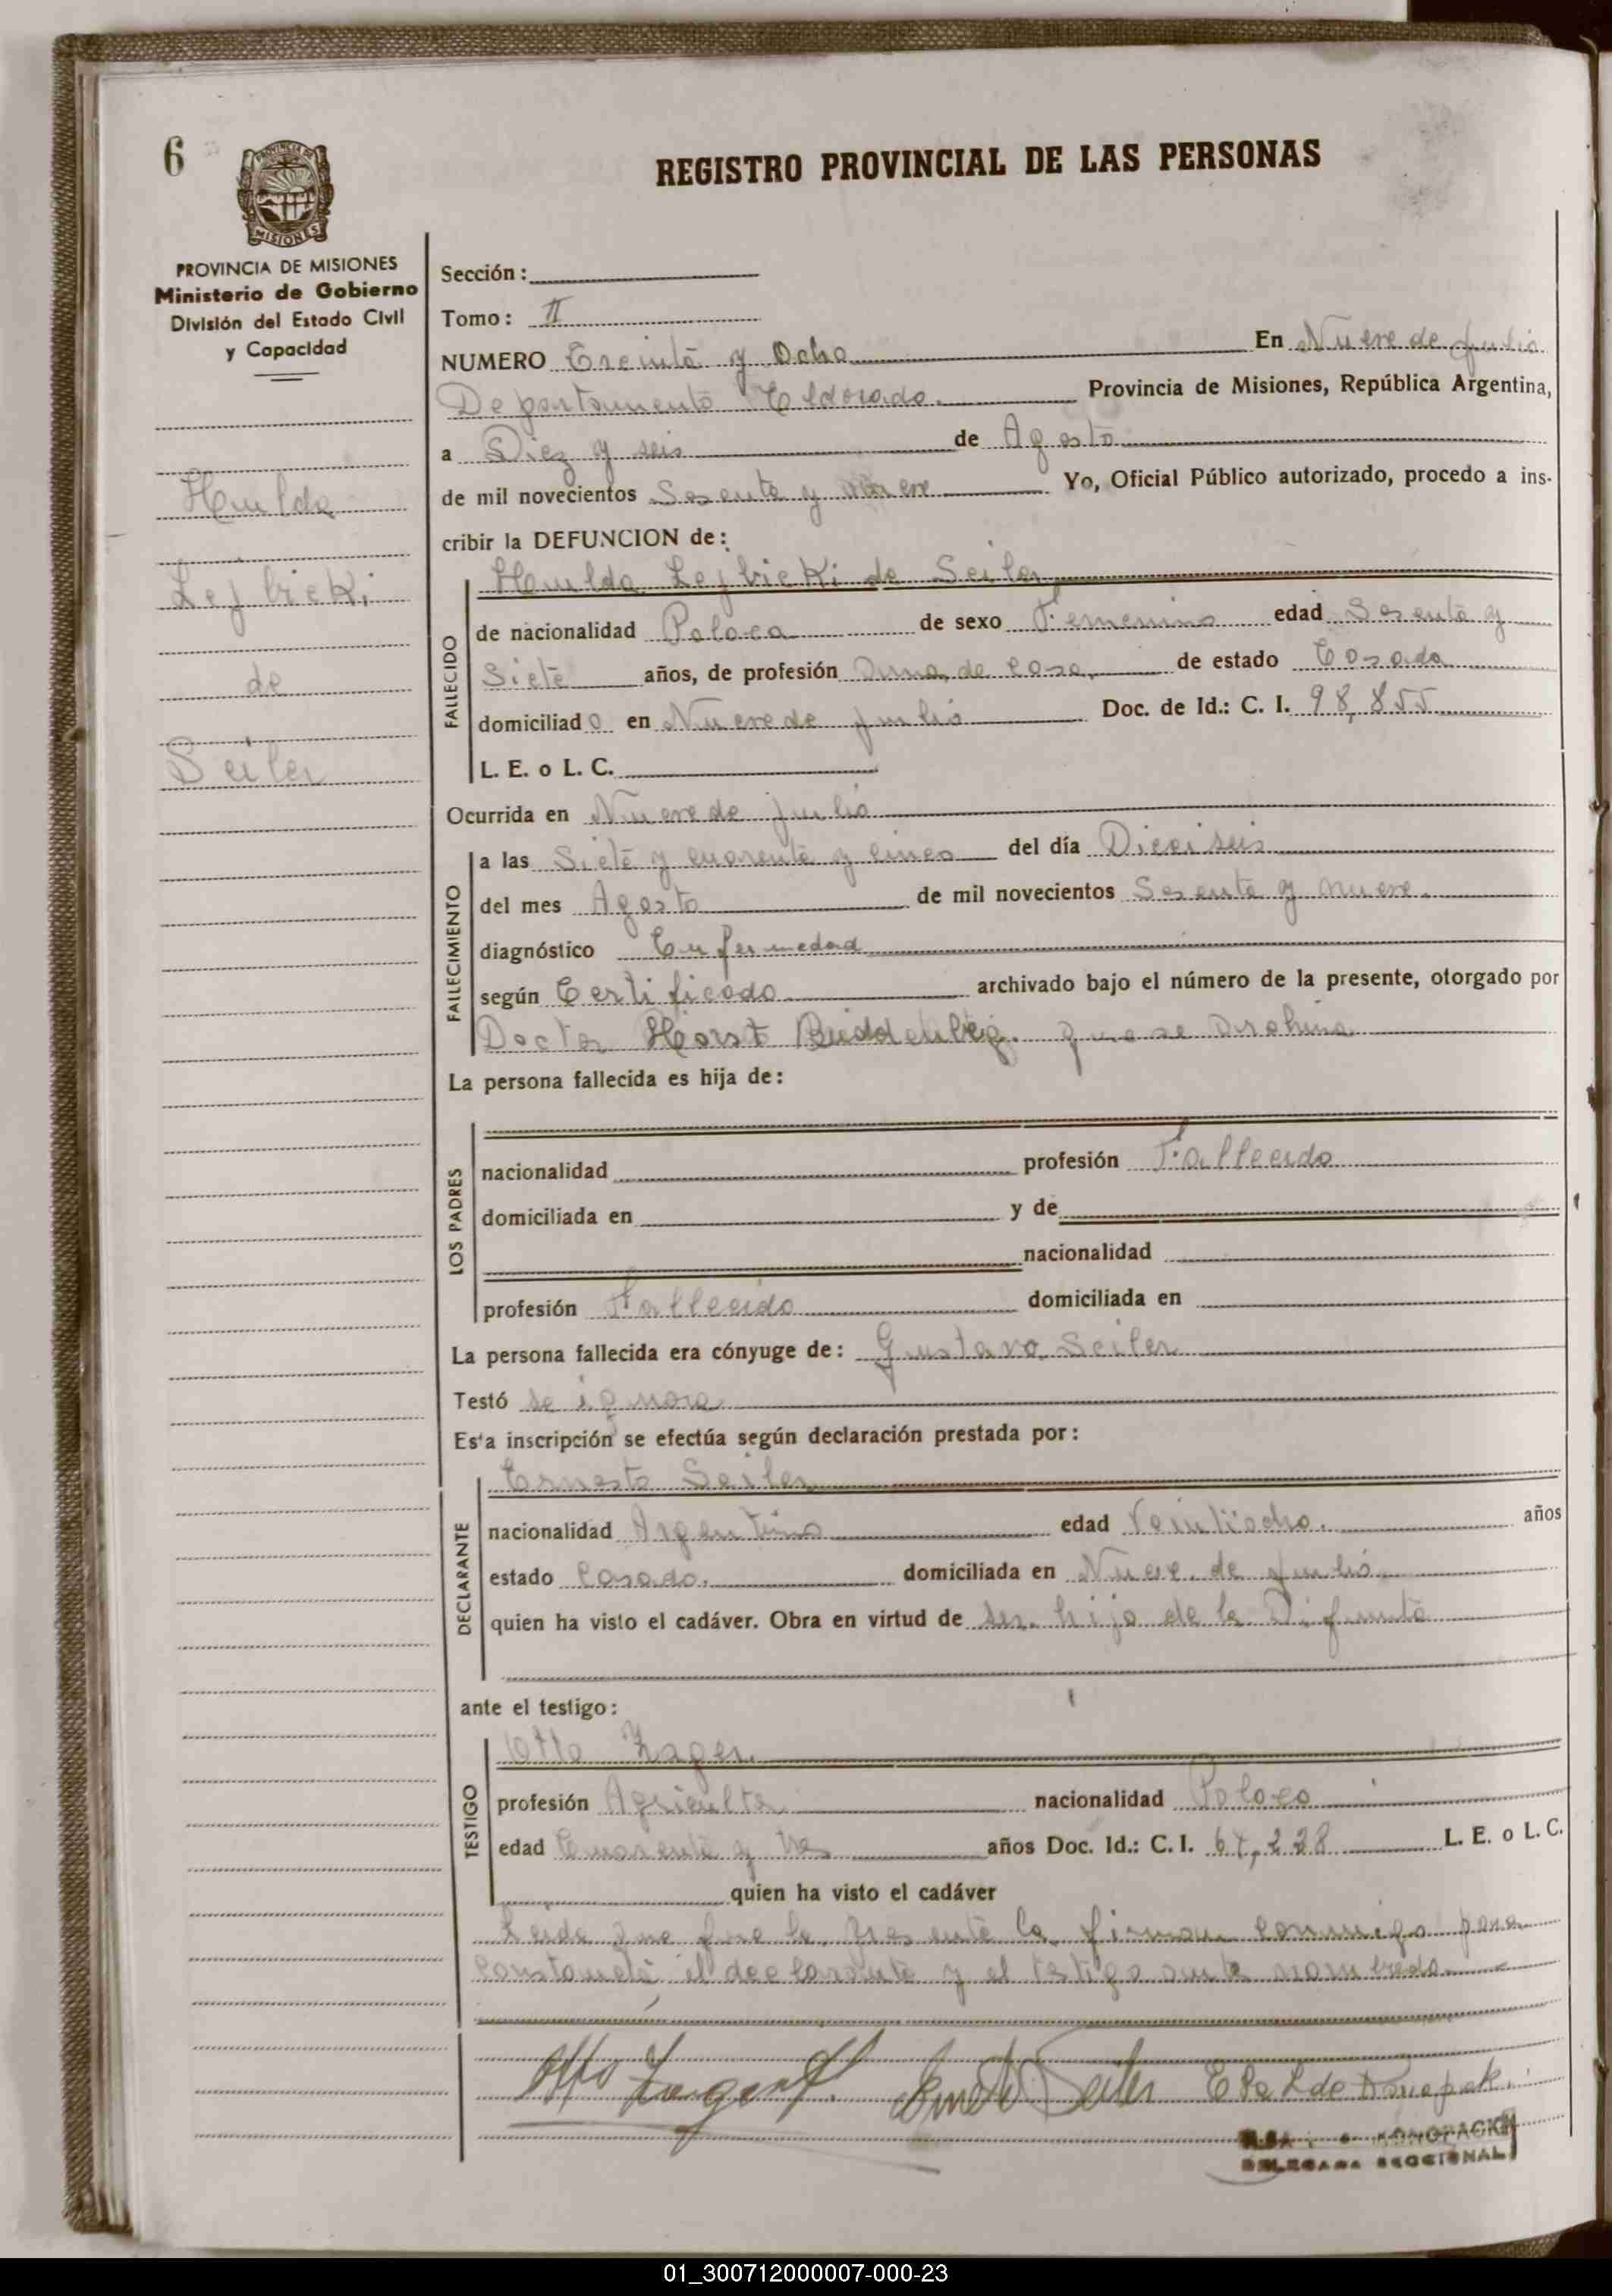 6
REGISTRO PROVINCIAL DE LAS PERSONAS
PROVINCIA DE MISIONES
Ministerio de Gobierno
División del Estado Civil
y Capacidad
Hulda
Lejbicki
de
Seiler
Sección:
Tomo: II
NUMERO Treinta y Ocho En Nueve de Julio
Departamento Eldorado. Provincia de Misiones, República Argentina,
a Diez y seis de Agosto
de mil novecientos Sesenta y nueve Yo, Oficial Público autorizado, procedo a ins-
cribir la DEFUNCION de:
Hulda Lejbicki de Seiler
FALLECIDO
de nacionalidad Polaca de sexo Femenino edad Sesenta y
Siete años, de profesión Ama de casa, de estado Casada
domiciliado en Nueve de Julio Doc. de Id.: C. I. 98,855
L. E. o L. C.
Ocurrida en Nueve de Julio
FALLECIMIENTO
a las Siete y cuarenta y cinco del día Dieciseis
del mes Agosto de mil novecientos Sesenta y nueve.
diagnóstico Enfermedad
según Certificado archivado bajo el número de la presente, otorgado por
Doctor Horst que se archiva
La persona fallecida es hija de:
LOS PADRES
nacionalidad profesión Fallecido
domiciliada en y de
nacionalidad
profesión Fallecido domiciliada en
La persona fallecida era cónyuge de: Gustavo Seiler
Testó se ignora
Esta inscripción se efectúa según declaración prestada por:
Ernesto Seiler
DECLARANTE
nacionalidad Argentino edad Veintiocho. años
estado Casado. domiciliada en Nueve de Julio
quien ha visto el cadáver. Obra en virtud de ser hijo de la Difunta
ante el testigo:
Otto Zager.
TESTIGO
profesión Agricultor nacionalidad Polaco
edad Cuarenta y tres años Doc. Id.: C. I. 64,228 L. E. o L. C.
quien ha visto el cadáver
Leida que fue la presente la firman conmigo para
constancia el declarante y el testigo ante nombrado.
Otto Ernesto Seiler
KONOPACKI
DELEGADA SECCIONAL
01_300712000007-000-23